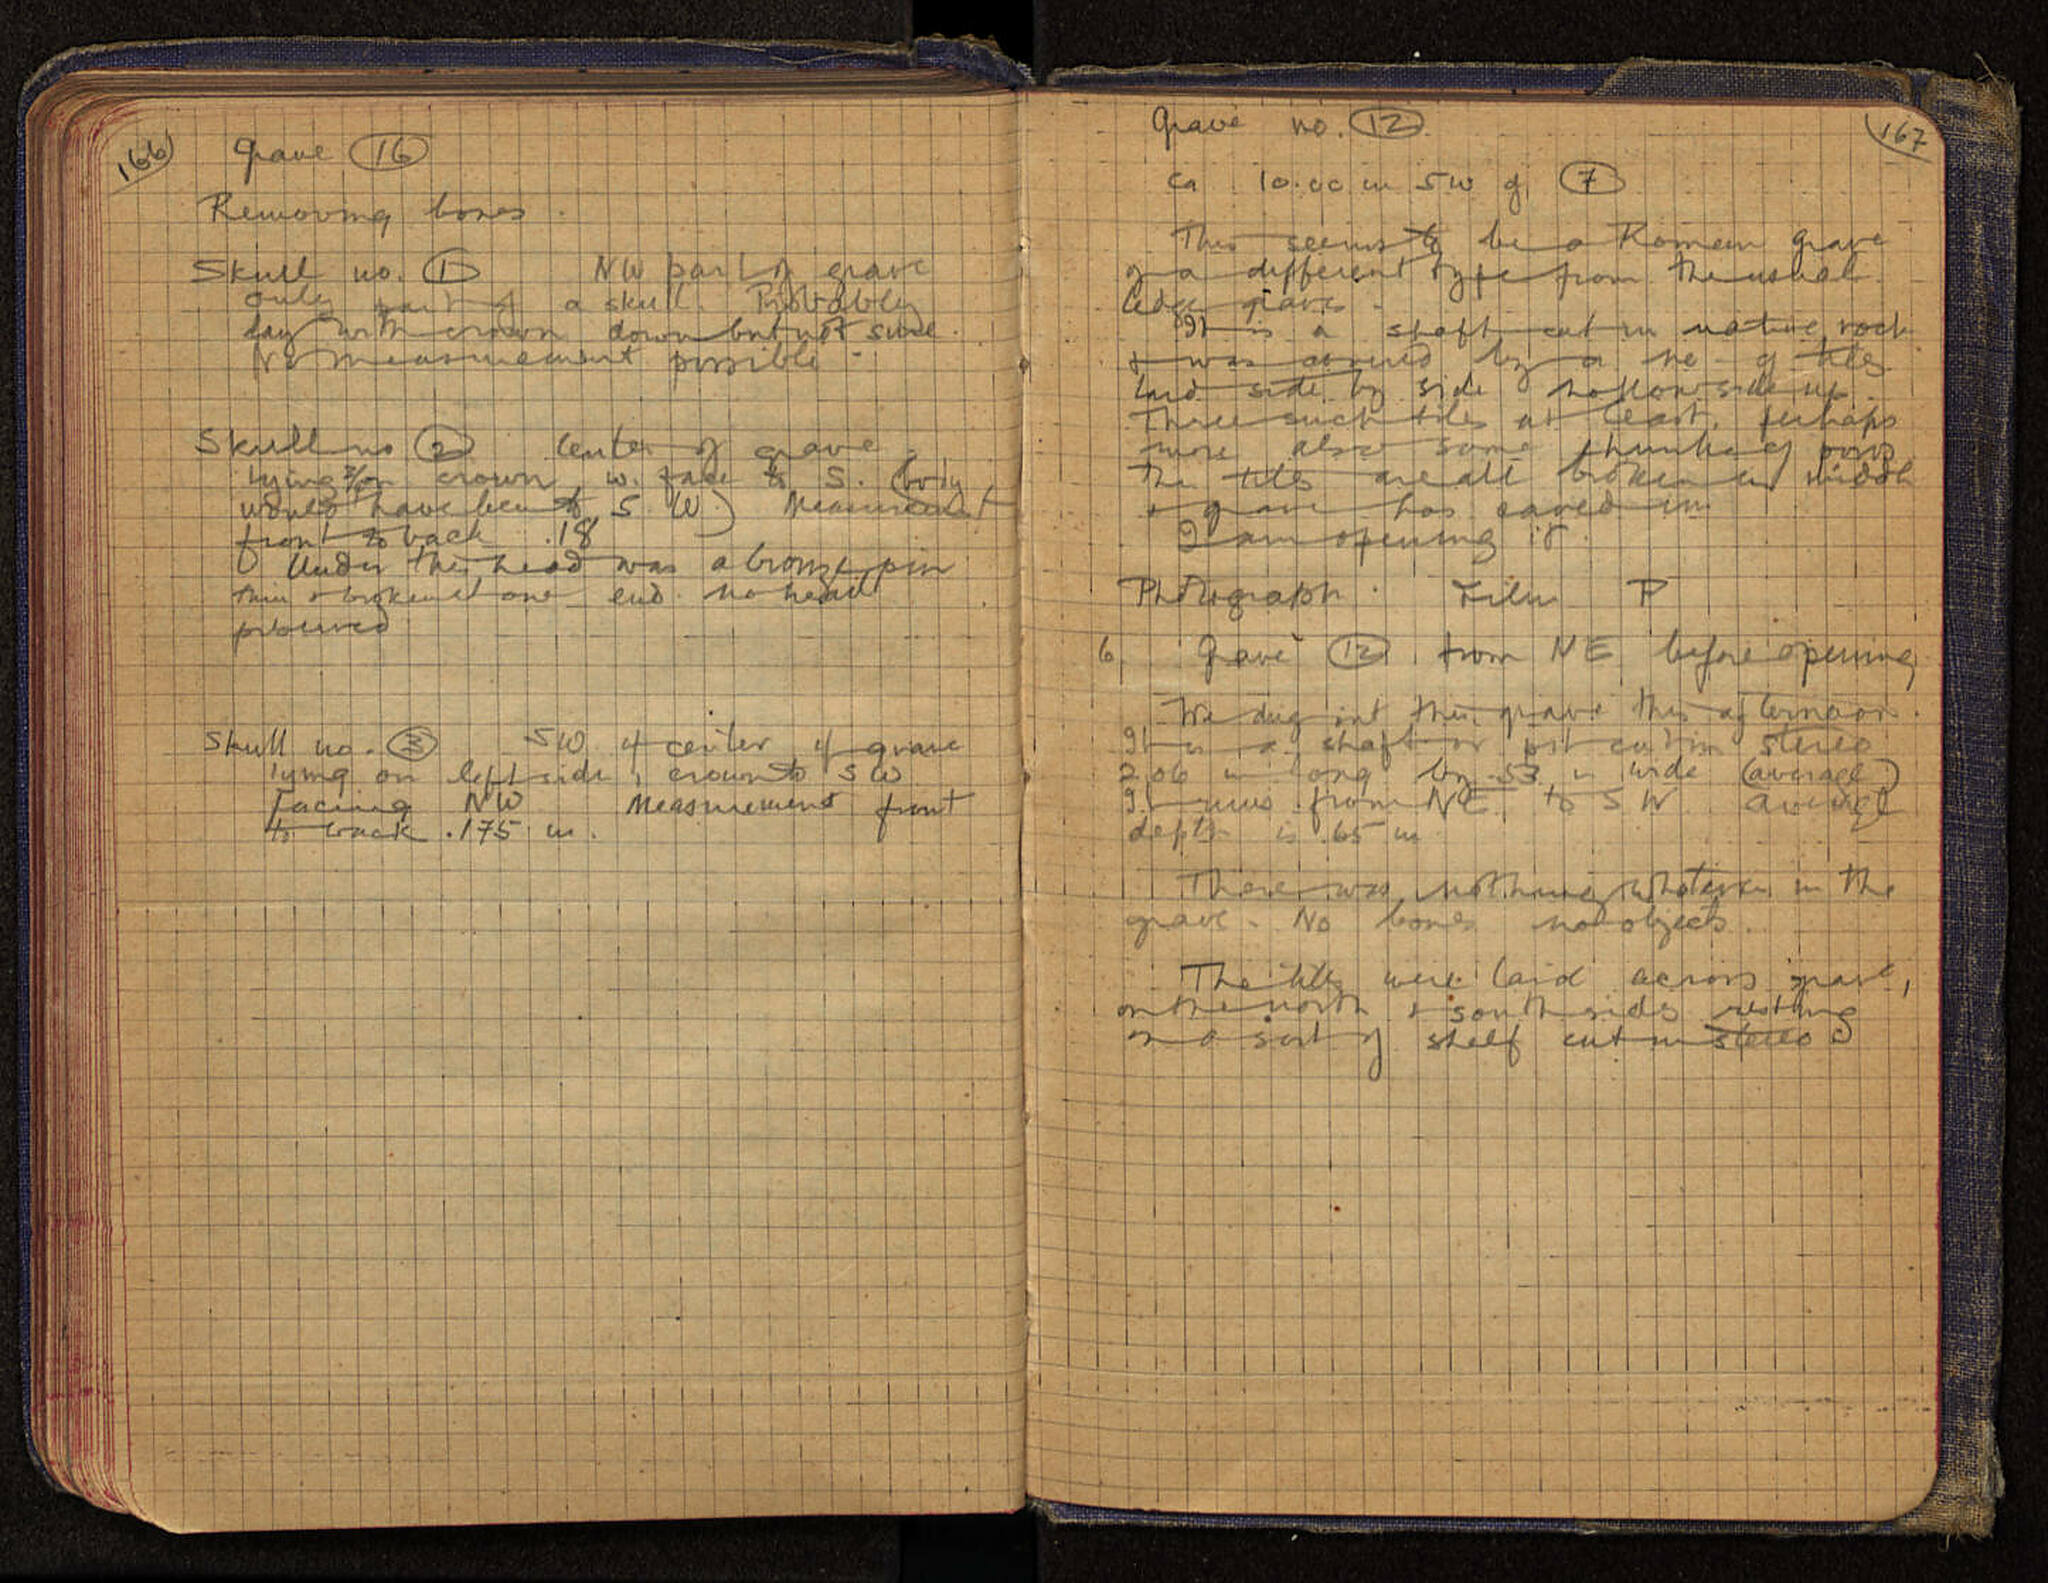 166
Grave 16
Removing bones.
Skull no. 1 NW part of grave
only part of a skull. Probably
lay with crown down but not sure.
No measurement possible.
Skull no 2 Center of grave
lying on crown w. face to S. (body
would have been to SW) Measurement
front to back .18
Under this head was a bronze pin
thin & broken at one end no head
preserved
Skull no. 3 SW of center of grave
lying on left side, crown to SW
facing NW Measurement front
to back .175 m.
167
Grave no. 12
ca 10.00 m SW of 7
This seems to be a Roman grave
of a different type from the usual
ledge grave.
It is a shaft cut in native rock
& was covered by a no. of tiles
laid side by side hollow side up.
Three such tiles at least, perhaps
more also some chunks of poros
The tiles are all broken in middle
& grave has caved in
I am opening it.
Photograph. Film P
6. Grave 12 from NE before opening
We dug out this grave this afternoon.
It is a shaft or pit cut in stereo
2.06 m long by .53 m wide (average)
It runs from NE to SW average
depth is .65 m
There was nothing whatever in the
grave. No bones no objects.
The tiles were laid across grave,
on the north & south sides resting
on a sort of shelf cut in stereo